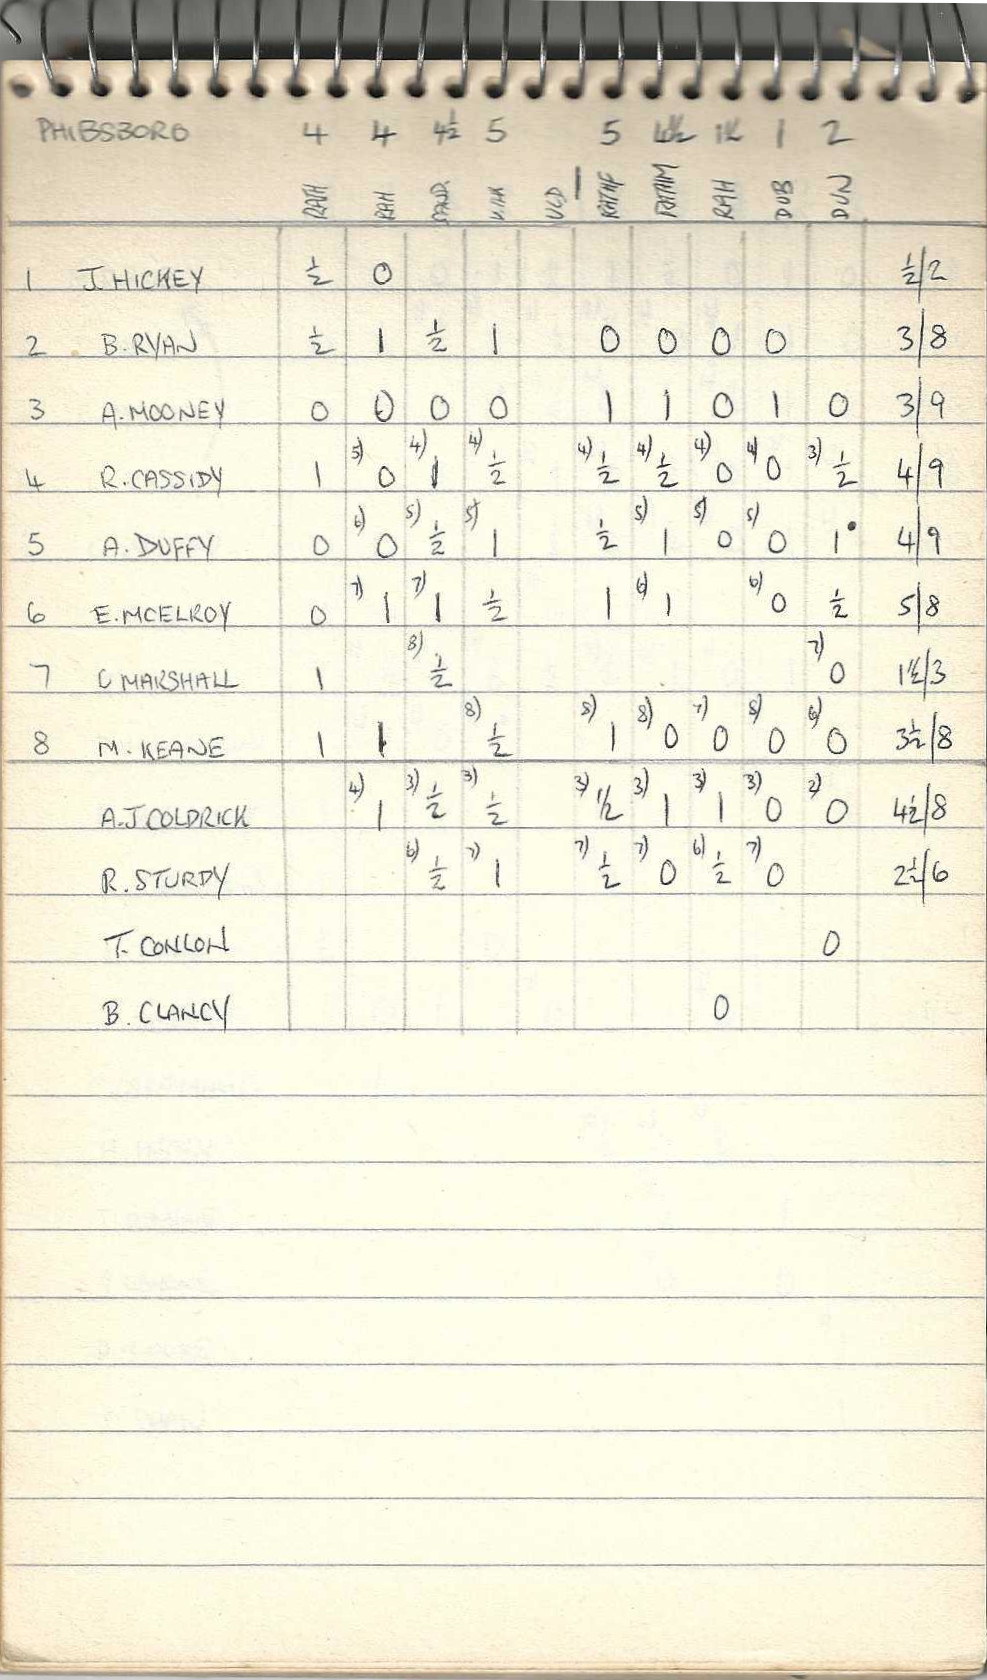 PHIBSBORO 4 4 4½ 5 5 4½ 1½ 1 2
RATH RAH SAND. UCD RATHF RATHM RAH DUB DUN
1 J HICKEY ½ 0 ½/2
2 B. RYAN ½ 1 ½ 1 0 0 0 0 3/8
3 A. MOONEY 0 0 0 0 1 1 0 1 0 3/9
4 R. CASSIDY 1 5) 0 4) 1 4) ½ 4) ½ 4) ½ 4) 0 4) 0 3) ½ 4/9
5 A. DUFFY 0 6) 0 5) ½ 5) 1 ½ 5) 1 5) 0 5) 0 1• 4/9
6 E. MCELROY 0 7) 1 7) 1 ½ 1 6) 1 6) 0 ½ 5/8
7 C MARSHALL 1 8) ½ 7) 0 1½/3
8 M. KEANE 1 1 8) ½ 8) 1 8) 0 7) 0 8) 0 6) 0 3½/8
A.J COLDRICK 4) 1 3) ½ 3) ½ 3) ½ 3) 1 3) 1 3) 0 2) 0 4½/8
R. STURDY 6) ½ 7) 1 7) ½ 7) 0 6) ½ 7) 0 2½/6
T. CONLON 0
B. CLANCY 0